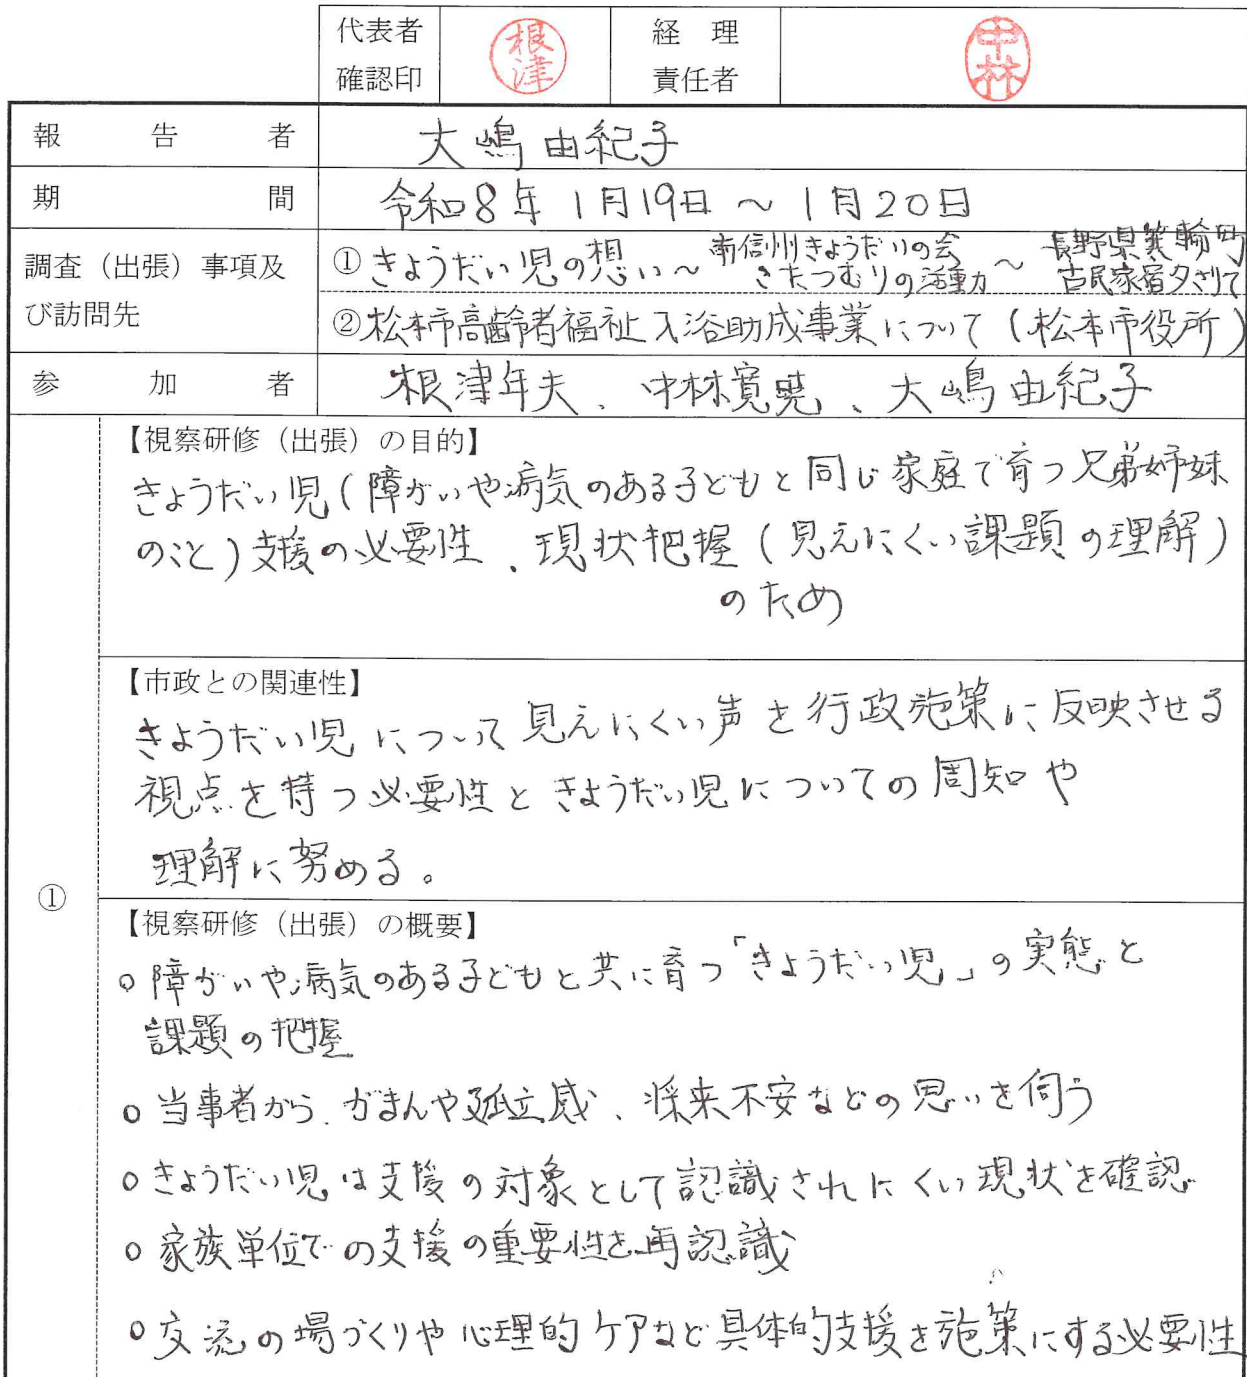 代表者
確認印
根津
経理
責任者
中林
報告者
大嶋由紀子
期間
令和8年 1月19日 ～ 1月20日
調査（出張）事項及
び訪問先
①きょうだい児の想い～南信州きょうだいの会
きたつむりの活動～
長野県箕輪町
古民家宿夕ざりて
②松本市高齢者福祉入浴助成事業について(松本市役所)
参加者
根津年夫、中林寛暁、大嶋由紀子
①
【視察研修（出張）の目的】
きょうだい児(障がいや病気のある子どもと同じ家庭で育つ兄弟姉妹
のこと)支援の必要性、現状把握(見えにくい課題の理解)
のため
【市政との関連性】
きょうだい児について見えにくい声を行政施策に反映させる
視点を持つ必要性ときょうだい児についての周知や
理解に努める。
【視察研修（出張）の概要】
○障がいや病気のある子どもと共に育つ「きょうだい児」の実態と
課題の把握
○当事者から、がまんや孤立感、将来不安などの思いを伺う
○きょうだい児は支援の対象として認識されにくい現状を確認
○家族単位での支援の重要性を再認識
○交流の場づくりや心理的ケアなど具体的支援を施策にする必要性